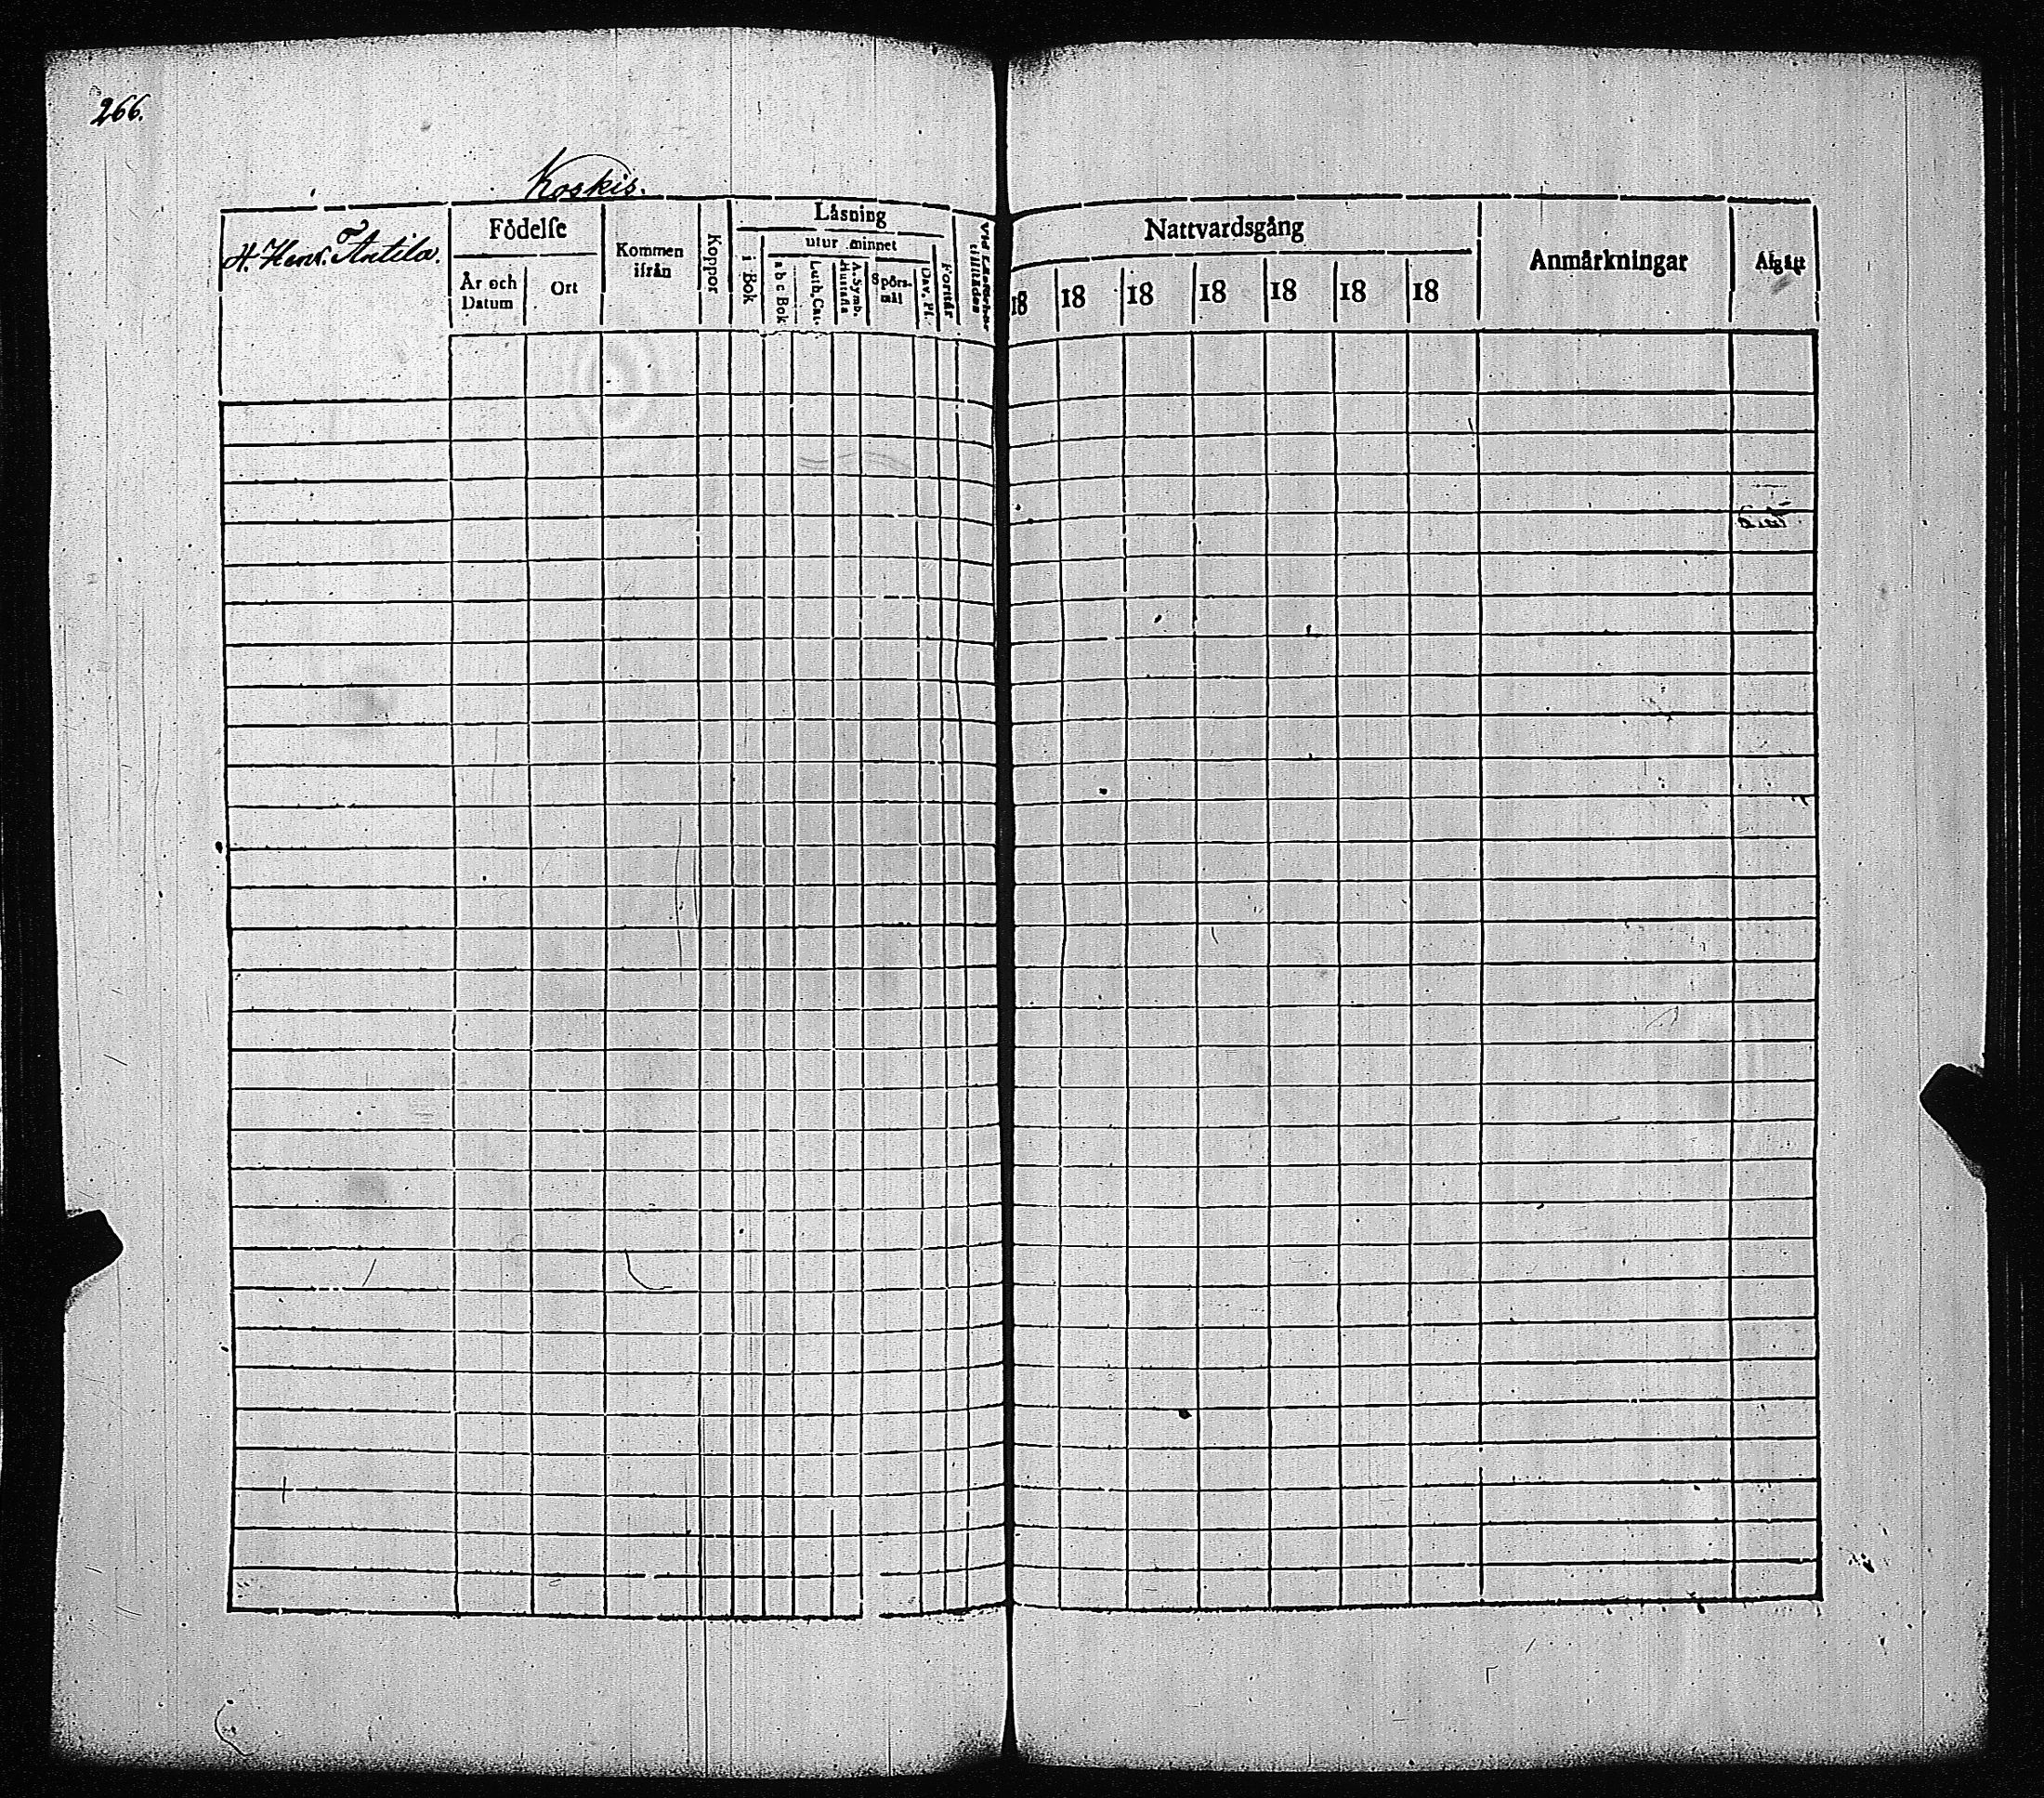 266.
Koskis.
H. Henr. Antila.
Födelse
År och Datum
Ort
Kommen ifrån
Koppor
Läsning
i Bok
utur minnet
a b c Bok
Luth. Cat.
A. Symb. Hustafla
Spörsmål
Dav. Ps.
Förstår
Nattvardsgång
18 18 18 18 18 18 18
Anmärkningar
Afgått